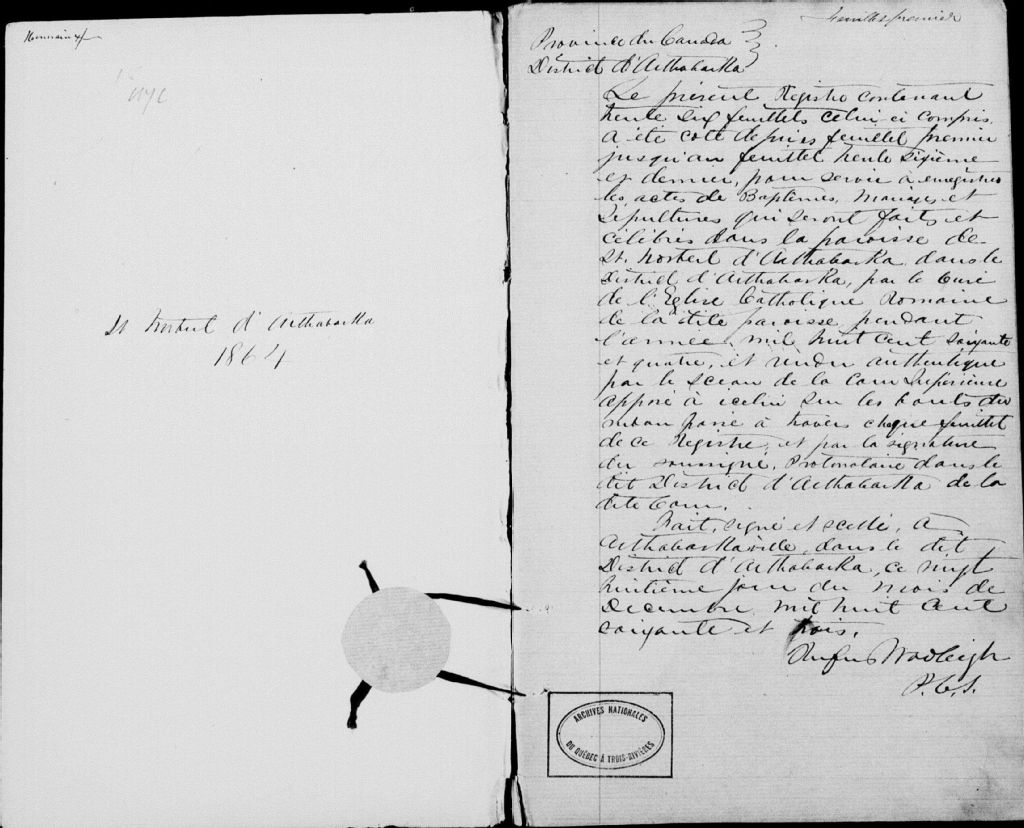 St Norbert d'Arthabaska
1864
feuillet premier
Province du Canada
District d'Arthabaska
Le présent Registre contenant
trente six feuillets celui-ci compris,
a été coté depuis feuillet premier
jusqu'au feuillet trente sixième
et dernier, pour servir à enregistrer
les actes de Baptêmes, Mariages et
Sépultures qui seront faits et
célébrés dans la paroisse de
St. Norbert d'Arthabaska, dans le
District d'Arthabaska, par le Curé
de l'Eglise Catholique Romaine
de la dite paroisse pendant
l'année mil huit cent soixante
et quatre, et rendu authentique
par le sceau de la Cour Supérieure
apposé à icelui sur les bouts du
ruban passé à travers chaque feuillet
de ce Registre, et par la signature
du soussigné, Protonotaire dans le
dit District d'Arthabaska de la
dite Cour.
Fait, signé et scellé, à
Arthabaskaville, dans le dit
District d'Arthabaska, ce vingt
huitième jour du mois de
Décembre mil huit cent
soixante et trois.
Rufus Wadleigh
P.C.S.
ARCHIVES NATIONALES
DU QUÉBEC À TROIS-RIVIÈRES